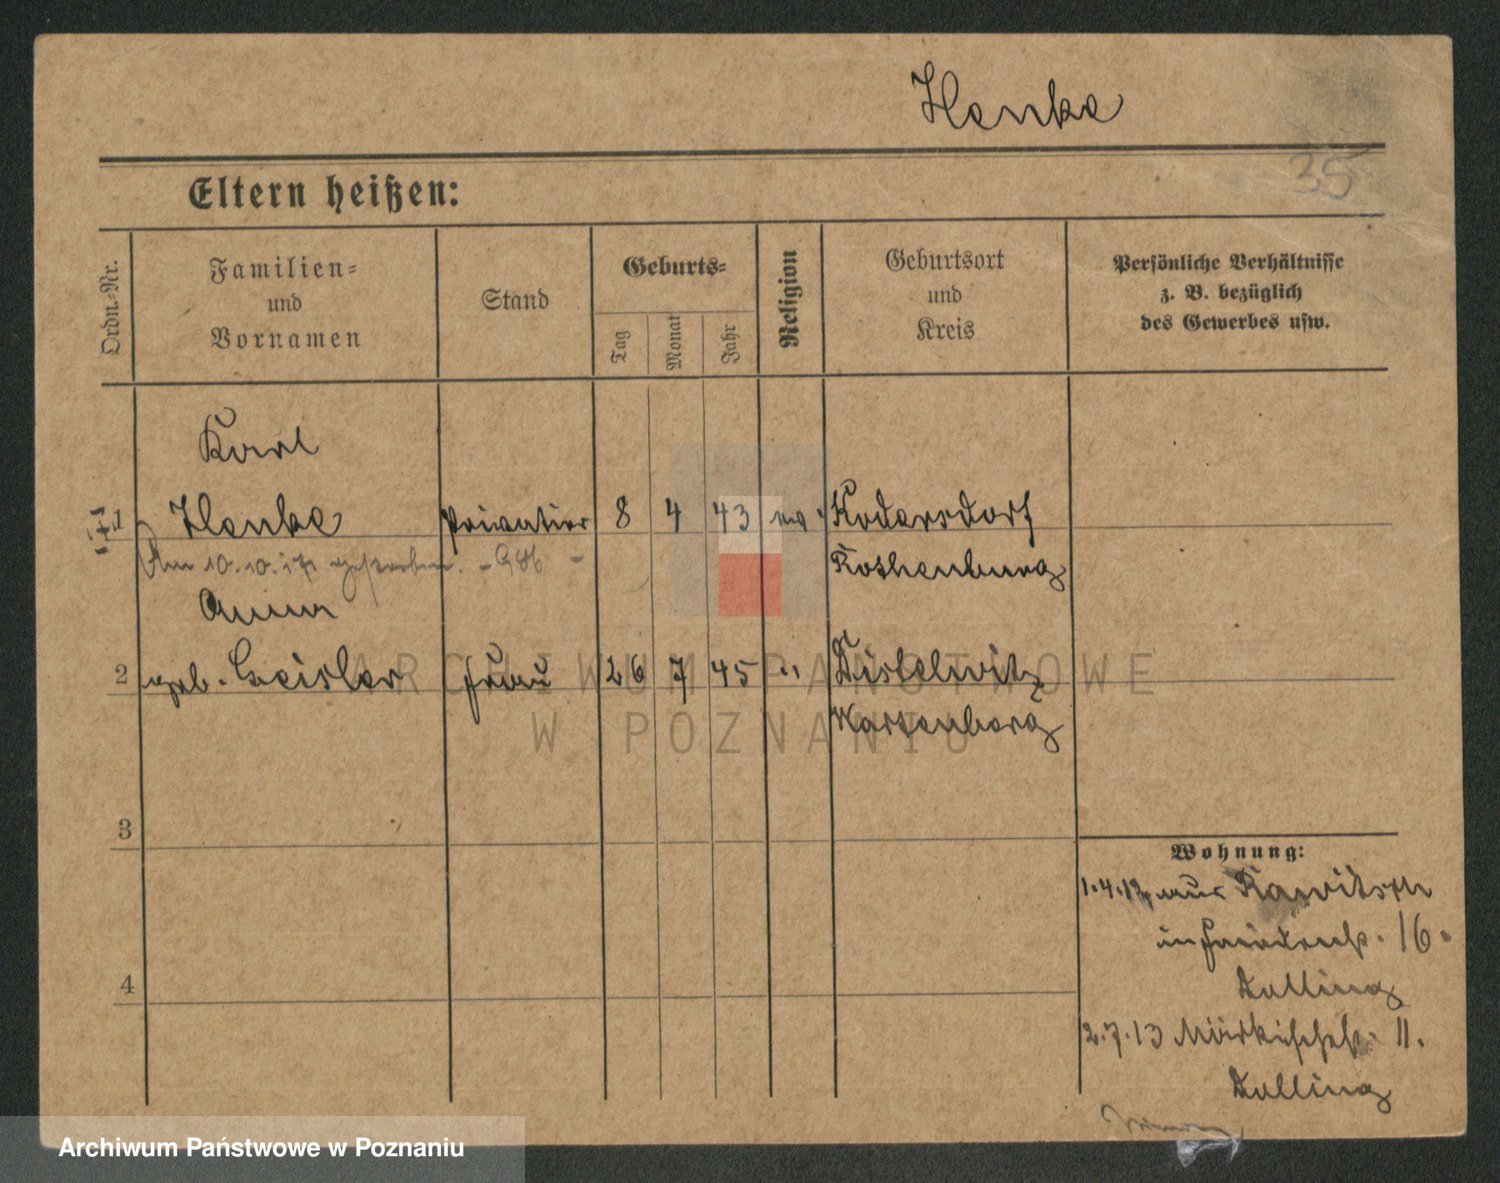 Hanke
35
Eltern heißen:
Ordn.-Nr.
Familien-
und
Vornamen
Stand
Geburts-
Tag
Monat
Jahr
Religion
Geburtsort
und
Kreis
Persönliche Verhältnisse
z. B. bezüglich
des Gewerbes usw.
Karl
1 Hanke Privatier 8 4 43 ev. Kodersdorf
Am 10.10.17 gestorben. Rothenburg
Anna
2 geb. Geisler Frau 26 7 45 " Distelwitz
Wartenberg
3
4
Wohnung:
1.4.12 aus Rawitsch
in 16.
Dalling
2.7.13 Märkischestr. 11.
Dalling
ARCHIWUM PAŃSTWOWE
W POZNANIU
Archiwum Państwowe w Poznaniu